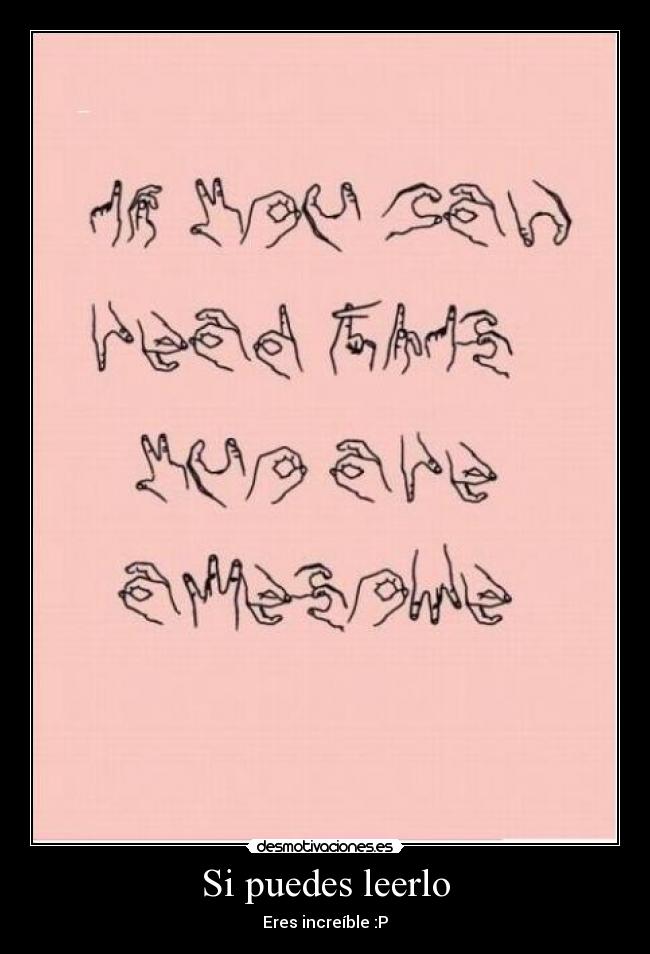 If you can
read this
yuo are
awesome
desmotivaciones.es
Si puedes leerlo
Eres increíble :P